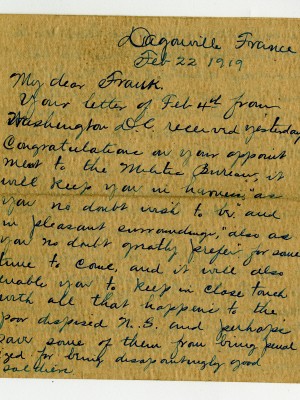 Dagonville France
Feb 22 1919
My dear Frank.
Your letter of Feb 4th from
Washington D.C. received yesterday
Congratulations on your appoint
ment to the Militia Bureau, it
will keep you in harness, as
you no doubt wish to be, and
in pleasant surroundings, also as
you no doubt greatly prefer for some
time to come, and it will also
enable you to keep in close touch
with all that happens to the
poor despised N.G. and perhaps
save some of them from being penal
ized for being disappointingly good
soldiers